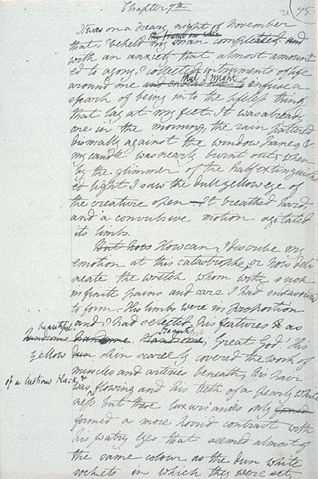 Chapter 7th
75
It was on a dreary night of November
the frame on whic
that I beheld my man completed, and
with an anxiety that almost amount
ed to agony, I collected instruments of life
that I might
around me and endeavour to infuse a
spark of being into the lifeless thing
that lay at my feet. It was already
one in the morning, the rain pattered
dismally against the window panes, &
my candle was nearly burnt out, when
by the glimmer of the half extinguish
ed light I saw the dull yellow eye of
the creature open — It breathed hard,
and a convulsive motion agitated
its limbs.
But how How can I describe my
emotion at this catastrophe, or how deli
neate the wretch whom with such
infinite pains and care I had endeavoured
to form. His limbs were in proportion
and I had selected his features as
beautiful
handsome. Handsome, Great God! His
yellow skin scarcely covered the work of
muscles and arteries beneath; his hair
of a lustrous black &
was flowing and his teeth of a pearly white
ness but these luxuriancies only
formed a more horrid contrast with
his watry eyes that seemed almost of
the same colour as the dun white
sockets in which they were set,